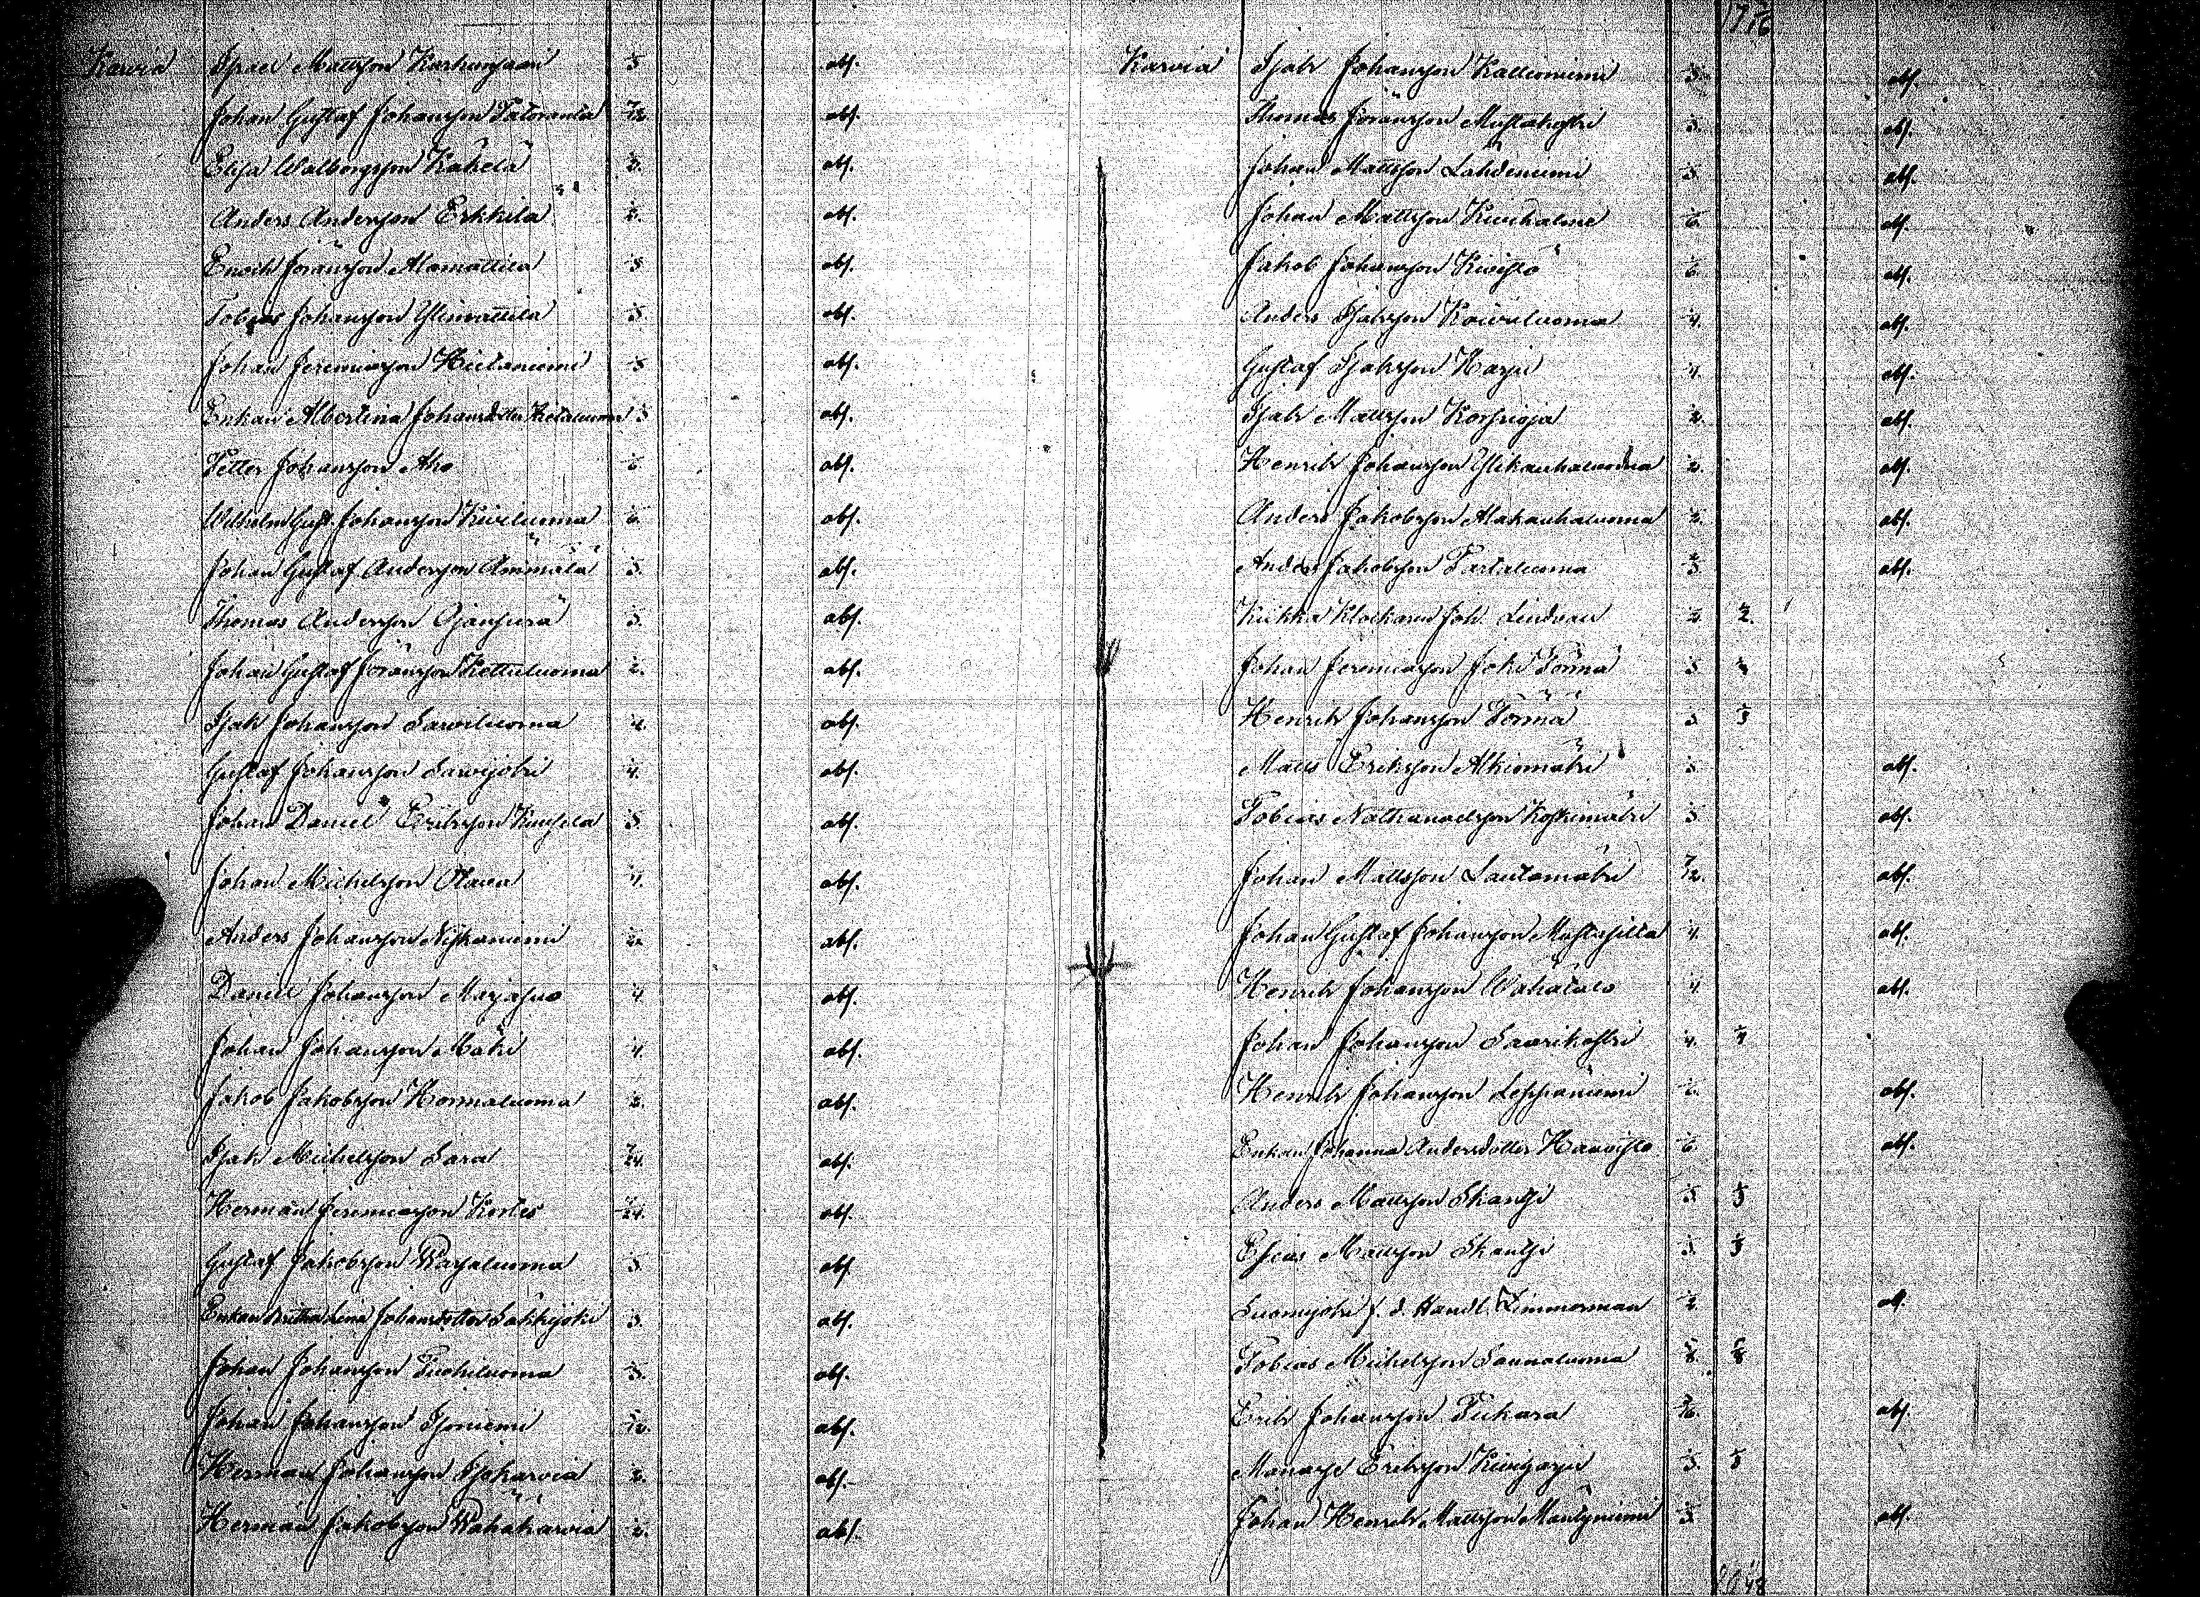 Karvia Isaac Mattsson Karhunsaari 1/3 abs.
Johan Gustaf Johansson Taloranta 7/12 abs.
Elisa Walborgsson Kakela 1/2. abs.
Anders Andersson Erkkilä 1/2. abs.
Enoch Joransson Alamattila 1/3 abs.
Tobias Johansson Ylimattila 1/3. abs.
Johan Jeremiasson Hietaniemi 1/3 abs.
Enkan Albertina Johansdotter Hietaluoma 1/3 abs.
Petter Johansson Aho 1/6 abs.
Wilhelm Gust. Johansson Kiviluoma 1/6 abs.
Johan Gustaf Andersson Ämmälä 1/3. abs.
Thomas Andersson Ojansuu 1/3. abs.
Johan Gustaf Joransson Kettuluoma 1/2. abs.
Isak Johansson Sarviluoma 1/4. abs.
Gustaf Johansson Sarvijoki 1/4. abs.
Johan Daniel Eriksson Kausela 1/3. abs.
Johan Michelsson Otava 1/4. abs.
Anders Johansson Niskaniemi abs.
Daniel Johansson Marjasuo 1/4 abs.
Johan Johansson Mäki 1/4. abs.
Jakob Jakobsson Hormaluoma 1/2. abs.
Isak Michelsson Sara 7/24. abs.
Herman Jeremiasson Kortes 7/24. abs.
Gustaf Jakobsson Warsaluoma 1/3. abs.
Enkan Lena Johansdotter Sakkijoki 1/3. abs.
Johan Johansson Tuohiluoma 1/3. abs.
Johan Johansson Isoniemi 1/12. abs.
Herman Johansson Isokarvia 1/2. abs.
Herman Jakobsson Wähäkarvia 1/2. abs.
17 1/16
Karvia Isak Johansson Kallioniemi 1/3. abs.
Thomas Joransson Mustakoski 1/3. abs.
Johan Mattsson Lahdeniemi 1/3. abs.
Johan Mattsson Kivihalme 1/6. abs.
Jakob Johansson Kivistö 1/6. abs.
Anders Isaksson Koivuluoma 1/4. abs.
Gustaf Isaksson Harju 1/4. abs.
Isak Mattsson Korpioja 1/2. abs.
Henrik Johansson Ylikauhaluoma 1/2. abs.
Anders Jakobsson Alakauhaluoma 1/2. abs.
Anders Jakobsson Tartaluoma 2/3. abs.
Klockaren Joh. Lindvall 1/2. 1/2.
Johan Jeremiasson Joki Törmä 1/3
Henrik Johansson Törmä 1/3 1/3
Matts Eriksson Alkiomäki 1/3 abs.
Tobias Nathanaelsson Koskimäki 1/3. abs.
Johan Mattsson Lautamäki 7/12. abs.
Johan Gustaf Johansson Mustasilta 1/4. abs.
Henrik Johansson Wähätalo 1/4. abs.
Johan Johansson Saarikoski 1/4. 1/4
Henrik Johansson Leppäniemi 1/6. abs.
Enkan Johanna Andersdotter Haavisto 1/6. abs.
Anders Mattsson Skantsi 1/3 1/3
Esias Mattsson Skantsi 1/3. 1/3
Suomijoki f. d. Handl. Zimmerman 1/2. abs.
Tobias Michelsson Saunaluoma 5/8. 5/8
Erik Johansson Tukara abs.
Manasse Eriksson Kiviharju 1/3. 1/3
Johan Henrik Mattsson Mäntyniemi 1/3 abs.